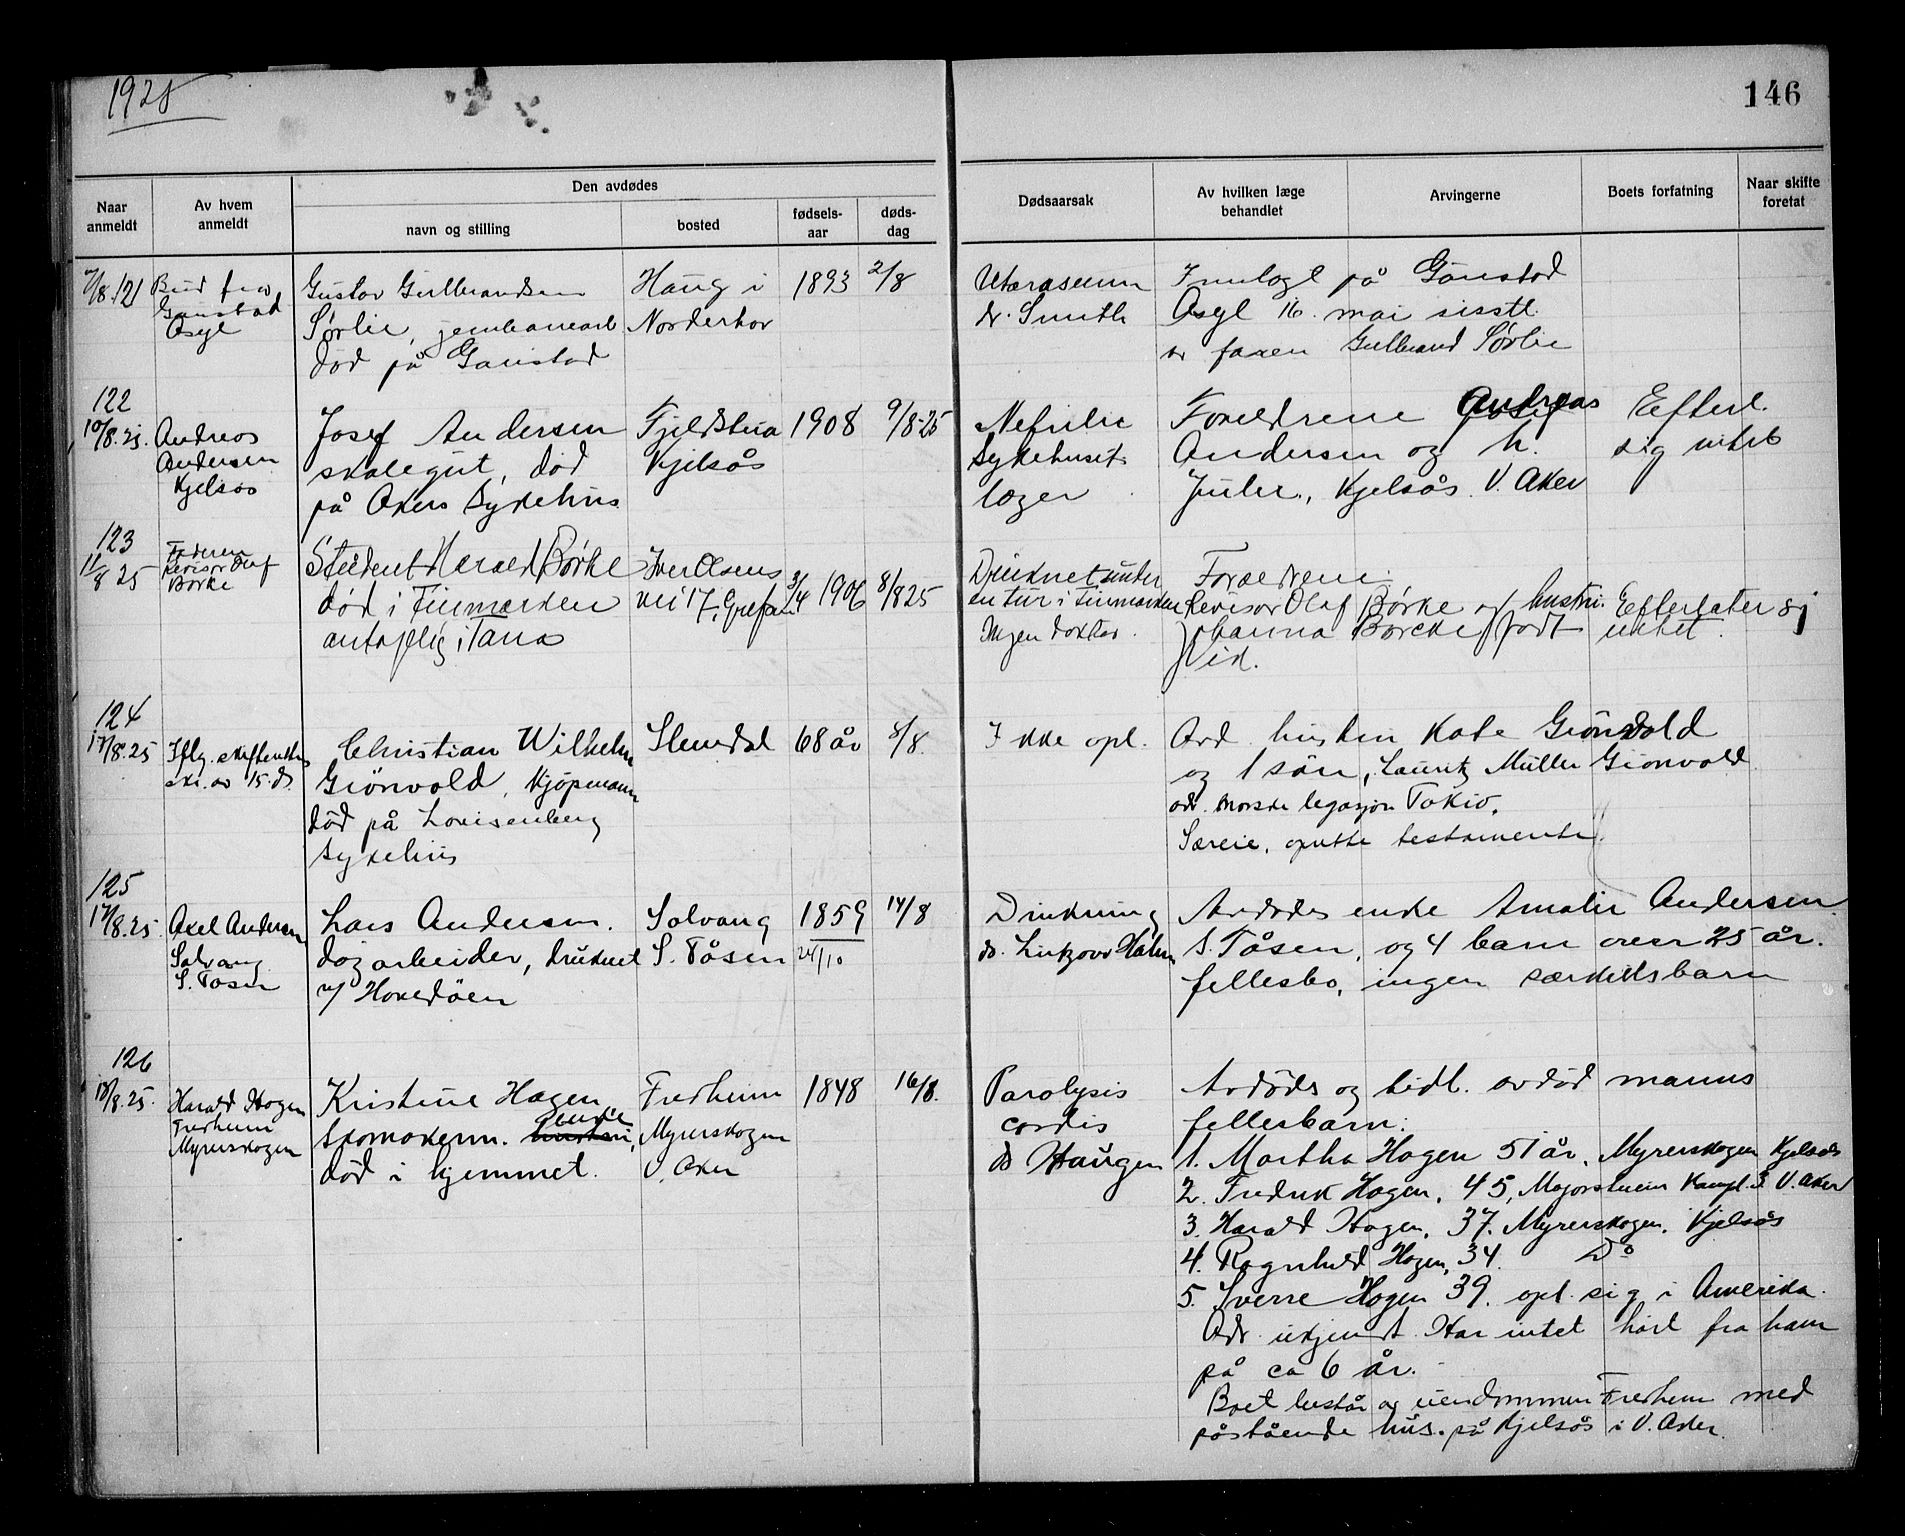 1925
146
Naar anmeldt
Av hvem anmeldt
Den avdødes
navn og stilling
bosted
fødsels-aar
døds-dag
Dødsaarsak
Av hvilken læge behandlet
Arvingerne
Boets forfatning
Naar skifte foretat
7/8 121
Bud fra
Gaustad
Asyl
Gustav Gulbrandsen
Sørlie, jernbanearb
død på Gaustad
Haug i
Norderhov
1893
2/8
dr. Smith
Innlagt på Gaustad
Asyl 16. mai sisstl.
av faren Gulbrand Sørlie
122
10/8.25.
Andreas
Andersen
Kjelsås
Josef Andersen
skolegut, død
på Akers Sykehus
Fjeldstua
Kjelsås
1908
9/8-25
Sykehusets
læger
Foreldrene Andreas
Andersen og h.
Julie, Kjelsås V. Aker
Efterl.
sig intet
123
11/8 25
Faderen
revisor Olaf
Børke
Student Harald Børke
død i Finmarken
antagelig i Tana
Iver Olsens
vei 17, Grefsen
3/4 1906
8/8 25
Druknet under
en tur i Finmarken
Ingen doktor.
Forældrene
Revisor Olaf Børke og hustru.
Johanna Børcke født
Vik.
Efterlater sig
intet.
124
17/8.25
Iflg. skifterettens
skr. av 15. ds
Christian Wilhelm
Grönvold, Kjøpmann
død på Lovisenberg
sykehus
Slemdal
68 år
8/8
Ikke opl.
Avd. hustru Kate Grönvold
og 1 sön, Lauritz Müller Grönvold
adr. Norske legasjon Tokio.
Særeie, oprette testamente.
125
17/8.25
Axel Andersen
Solvang
S. Tåsen
Lars Andersen.
dagarbeider, druknet
v/ Hovedöen
Solvang
S. Tåsen
1859
24/10
14/8
Drukning
Avdødes enke Amalie Andersen
S. Tåsen, og 4 barn over 25 år.
fellesbo, ingen særkullsbarn
126
18/8.25.
Harald Hagen
Fredheim
Myrerskogen
Kristine Hagen
skomakerm. enke
død i hjemmet.
Fredheim
Myrerskogen
V. Aker
1848
16/8.
Paralysis
cordis
dr Haugen
Avdøds og tidl. avdød manns
fellesbarn:
1. Martha Hagen 51 år, Myrerskogen Kjelsås
2. Fredrik Hagen, 45, Majorstuen V. Aker
3. Harald Hagen, 37. Myrerskogen, Kjelsås
4. Ragnhild Hagen, 34. Do
5. Sverre Hagen 39. opl. sig i Amerika.
Adr. ukjendt. Har intet hört fra ham
på ca 6 år.
Boet består av eiendommen Fredheim med
påstående hus. på Kjelsås i V. Aker.